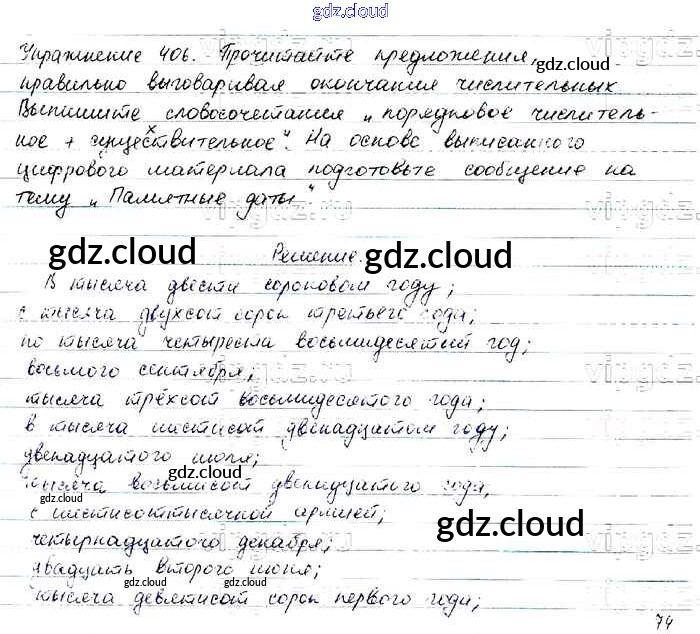 gdz.cloud
Упражнение 406. Прочитайте предложения,
gdz.cloud
правильно выговаривая окончания числительных
Выпишите словосочетания „порядковое числитель-
ное + существительное". На основе выписанного
цифрового материала подготовьте сообщение на
тему „Памятные даты".
vipgdz.ru
gdz.cloud
Решение.
gdz.cloud
В тысяча двести сороковом году;
с тысяча двухсот сорок третьего года;
по тысяча четыреста восьмидесятый год;
восьмого сентября;
тысяча трёхсот восьмидесятого года;
в тысяча шестисот двенадцатом году;
двенадцатого июля;
gdz.cloud
тысяча восьмисот двенадцатого года,
gdz.cloud
с шестисоттысячной армией;
gdz.cloud
четырнадцатого декабря;
двадцать второго июня;
gdz.cloud
тысяча девятисот сорок первого года;
74